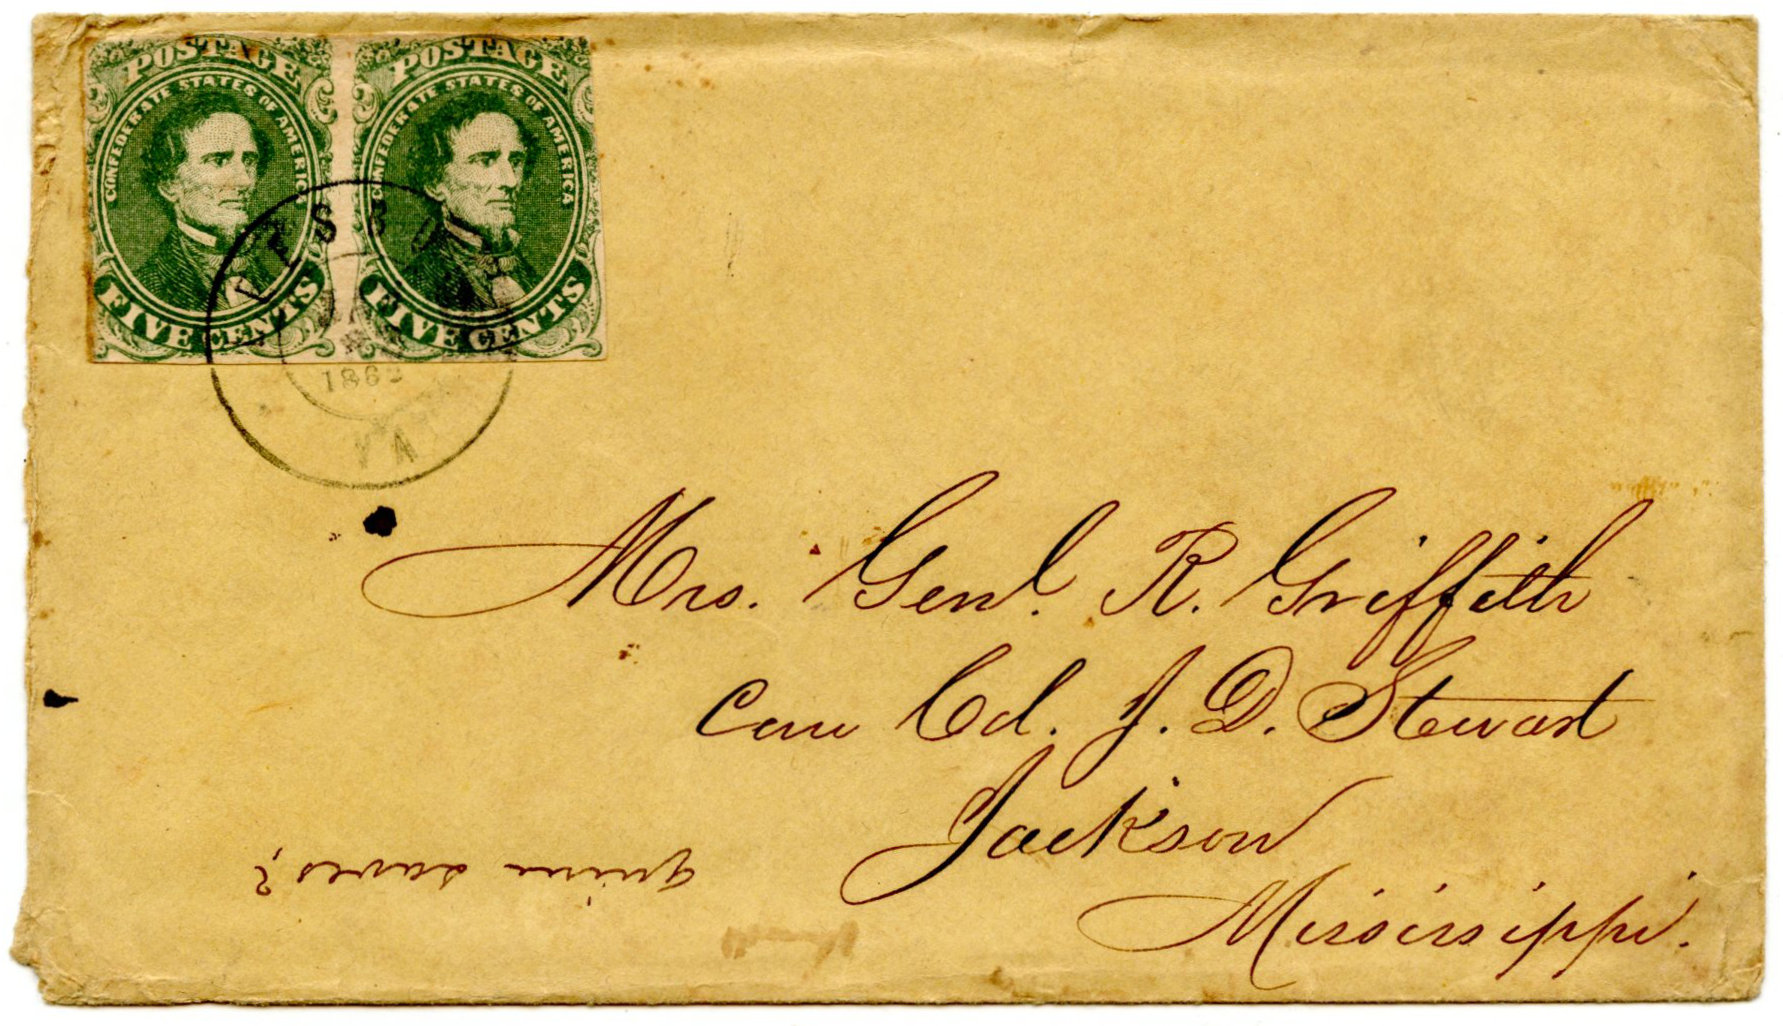 POSTAGE
CONFEDERATE STATES OF AMERICA
FIVE CENTS
POSTAGE
CONFEDERATE STATES OF AMERICA
FIVE CENTS
1862
VA
Mrs. Genl. R. Griffith
Care Col. J. D. Stewart
Jackson
Mississippi.